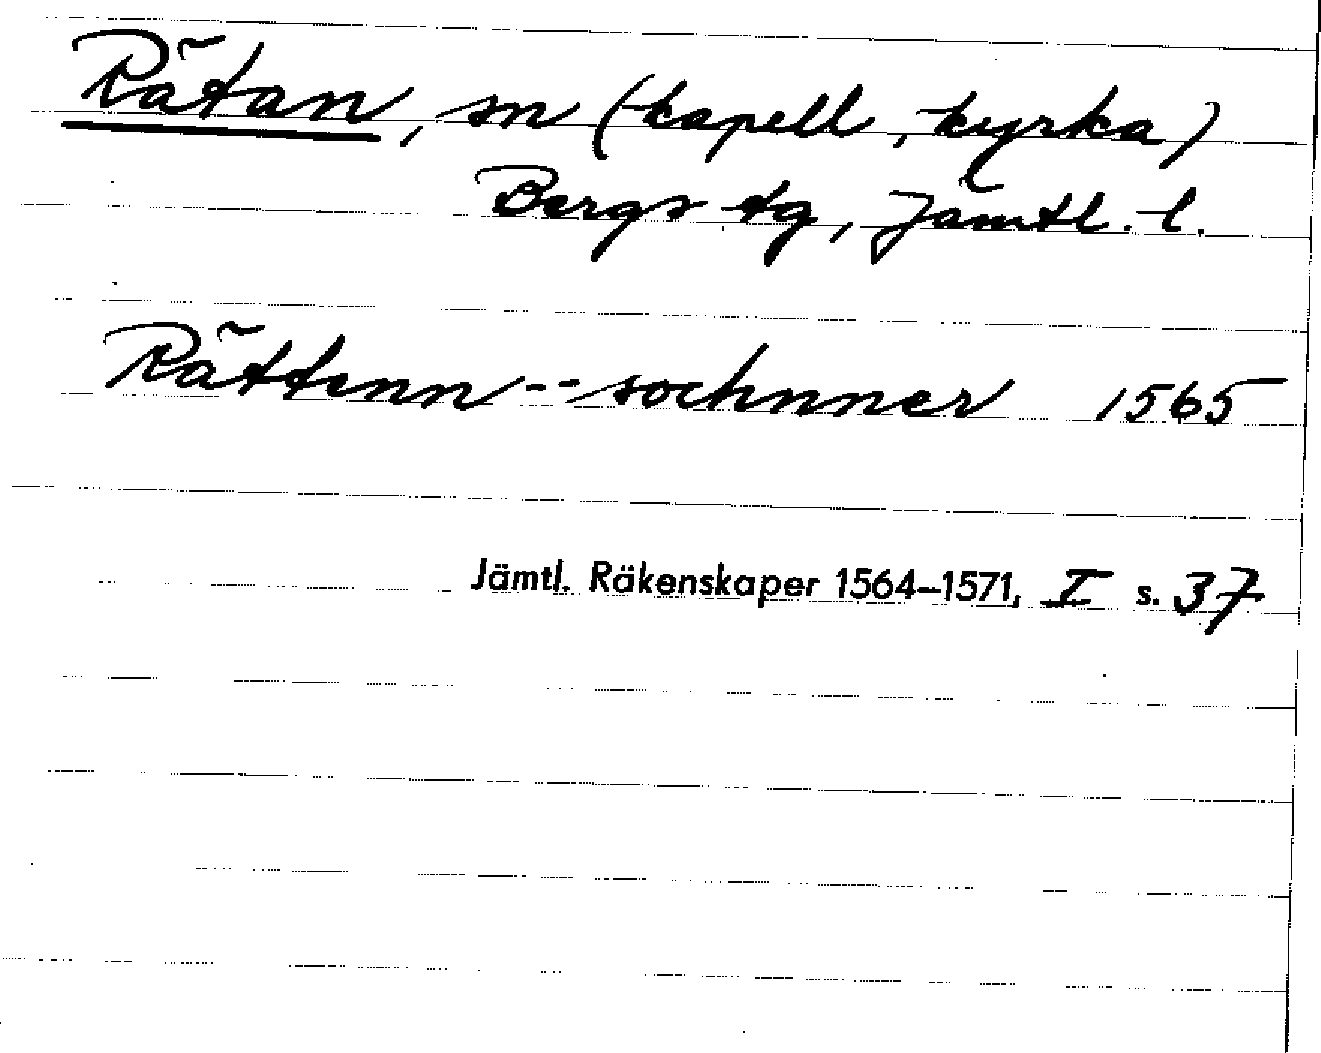 Rätan, sn (kapell, kyrka)
Bergs tg, Jämtl. l.
Rättenn -- sochnner 1565
Jämtl. Räkenskaper 1564–1571, I s. 37